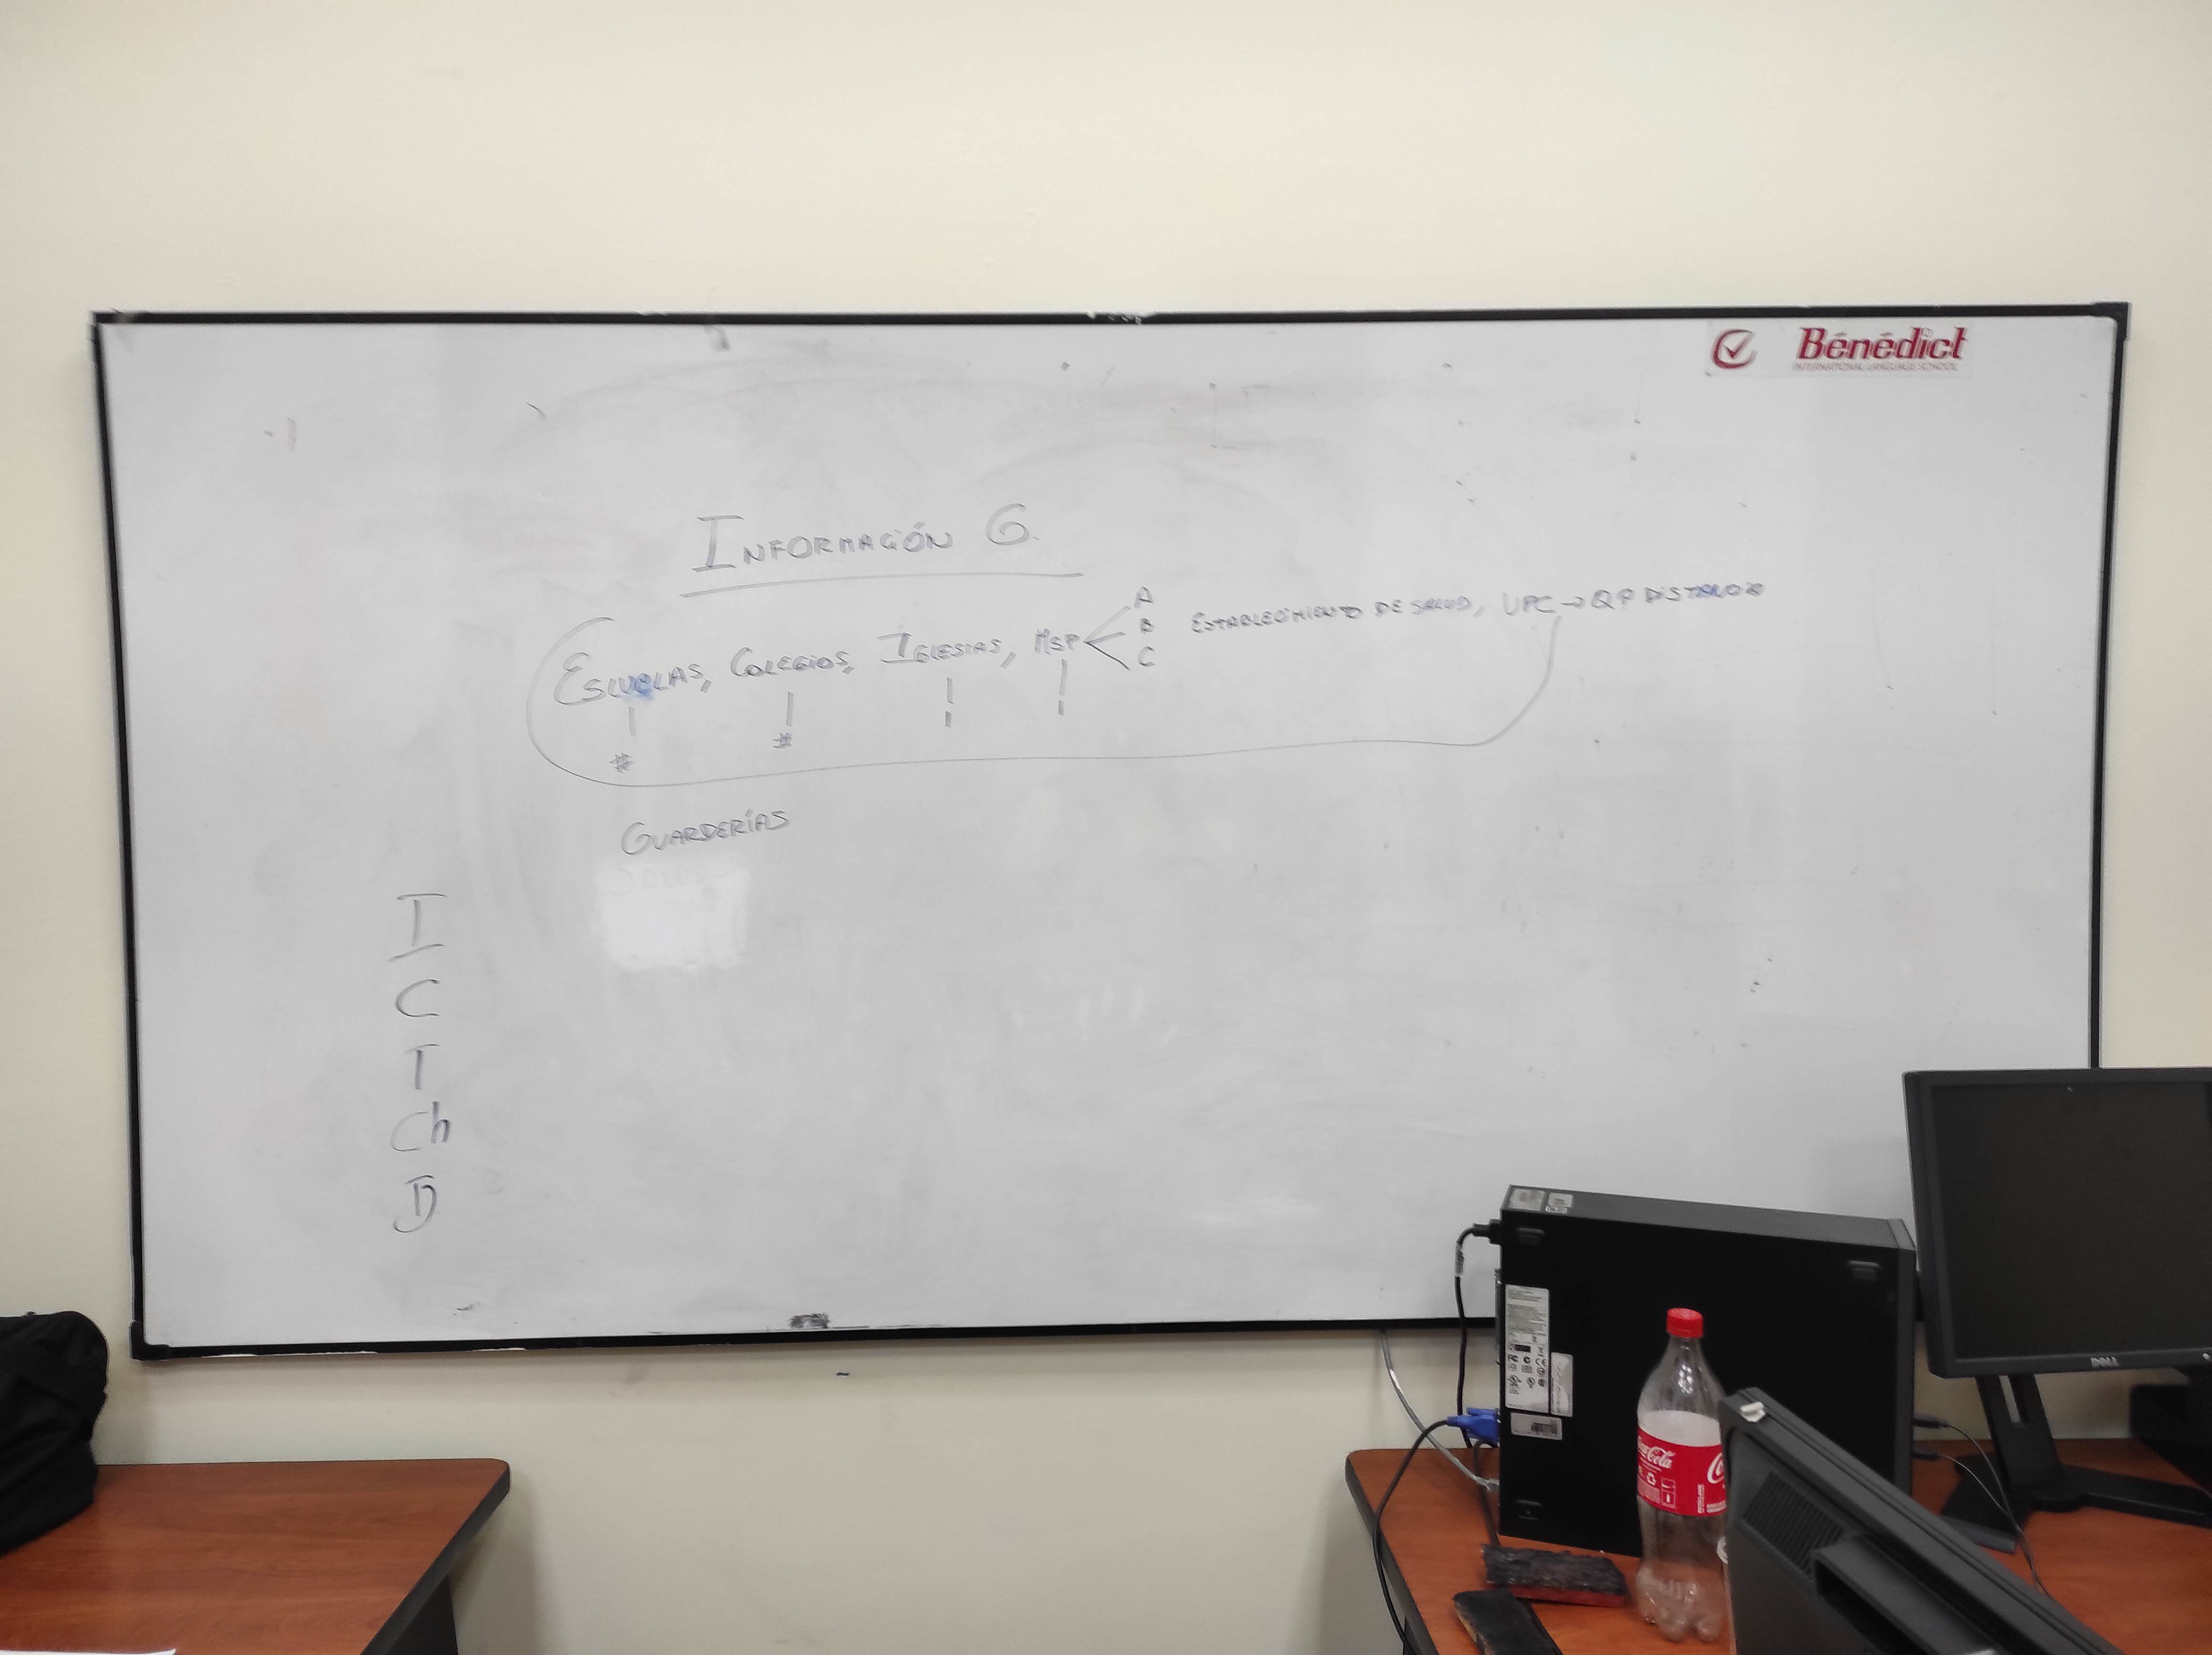 Bénédict
INTERNATIONAL LANGUAGE SCHOOL
INFORMACIÓN G.
ESCUELAS, COLEGIOS, IGLESIAS, MSP
A
B
C
ESTABLECIMIENTO DE SALUD, UPC → QP DISTANCIA
# #
GUARDERÍAS
I
C
T
Ch
D
DELL
Coca-Cola